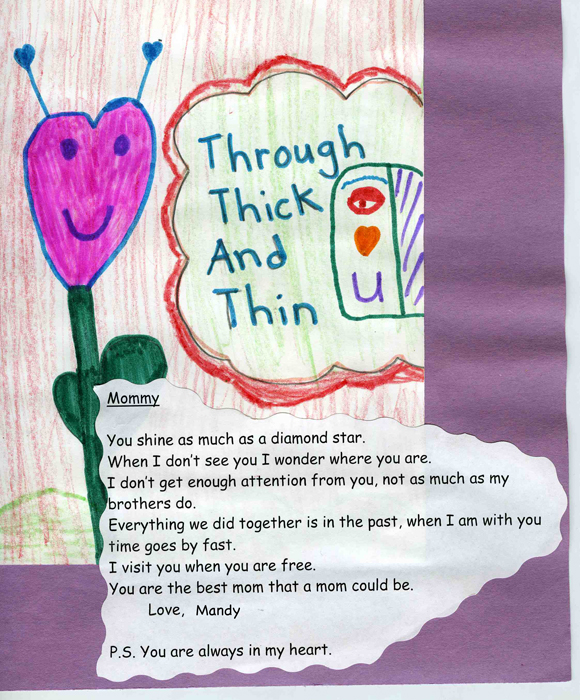 Through
Thick
And
Thin
U
Mommy
You shine as much as a diamond star.
When I don't see you I wonder where you are.
I don't get enough attention from you, not as much as my
brothers do.
Everything we did together is in the past, when I am with you
time goes by fast.
I visit you when you are free.
You are the best mom that a mom could be.
Love, Mandy
P.S. You are always in my heart.